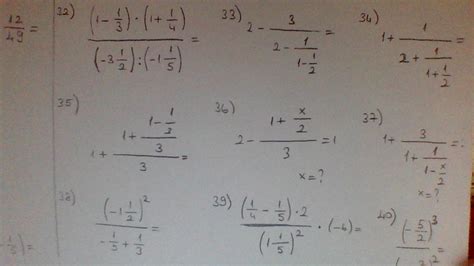 12/49 =
32) ((1 - 1/3) · (1 + 1/4)) / ((-3 1/2) : (-1 1/5)) =
33) 2 - 3/(2 - 1/(1 - 1/2)) =
34) 1 + 1/(2 + 1/(1 + 1/2)) =
35) 1 + (1 + (1 - 1/3)/3)/3 =
36) 2 - (1 + x/2)/3 = 1
x = ?
37) 1 + 3/(1 + 1/(1 - x/2))
x = ?
38) (-1 1/2)² / (-1/3 + 1/3) =
39) ((1/4 - 1/5) · 2) / (1 1/5)² · (-4) =
40) (-5/2)³
1/5) =